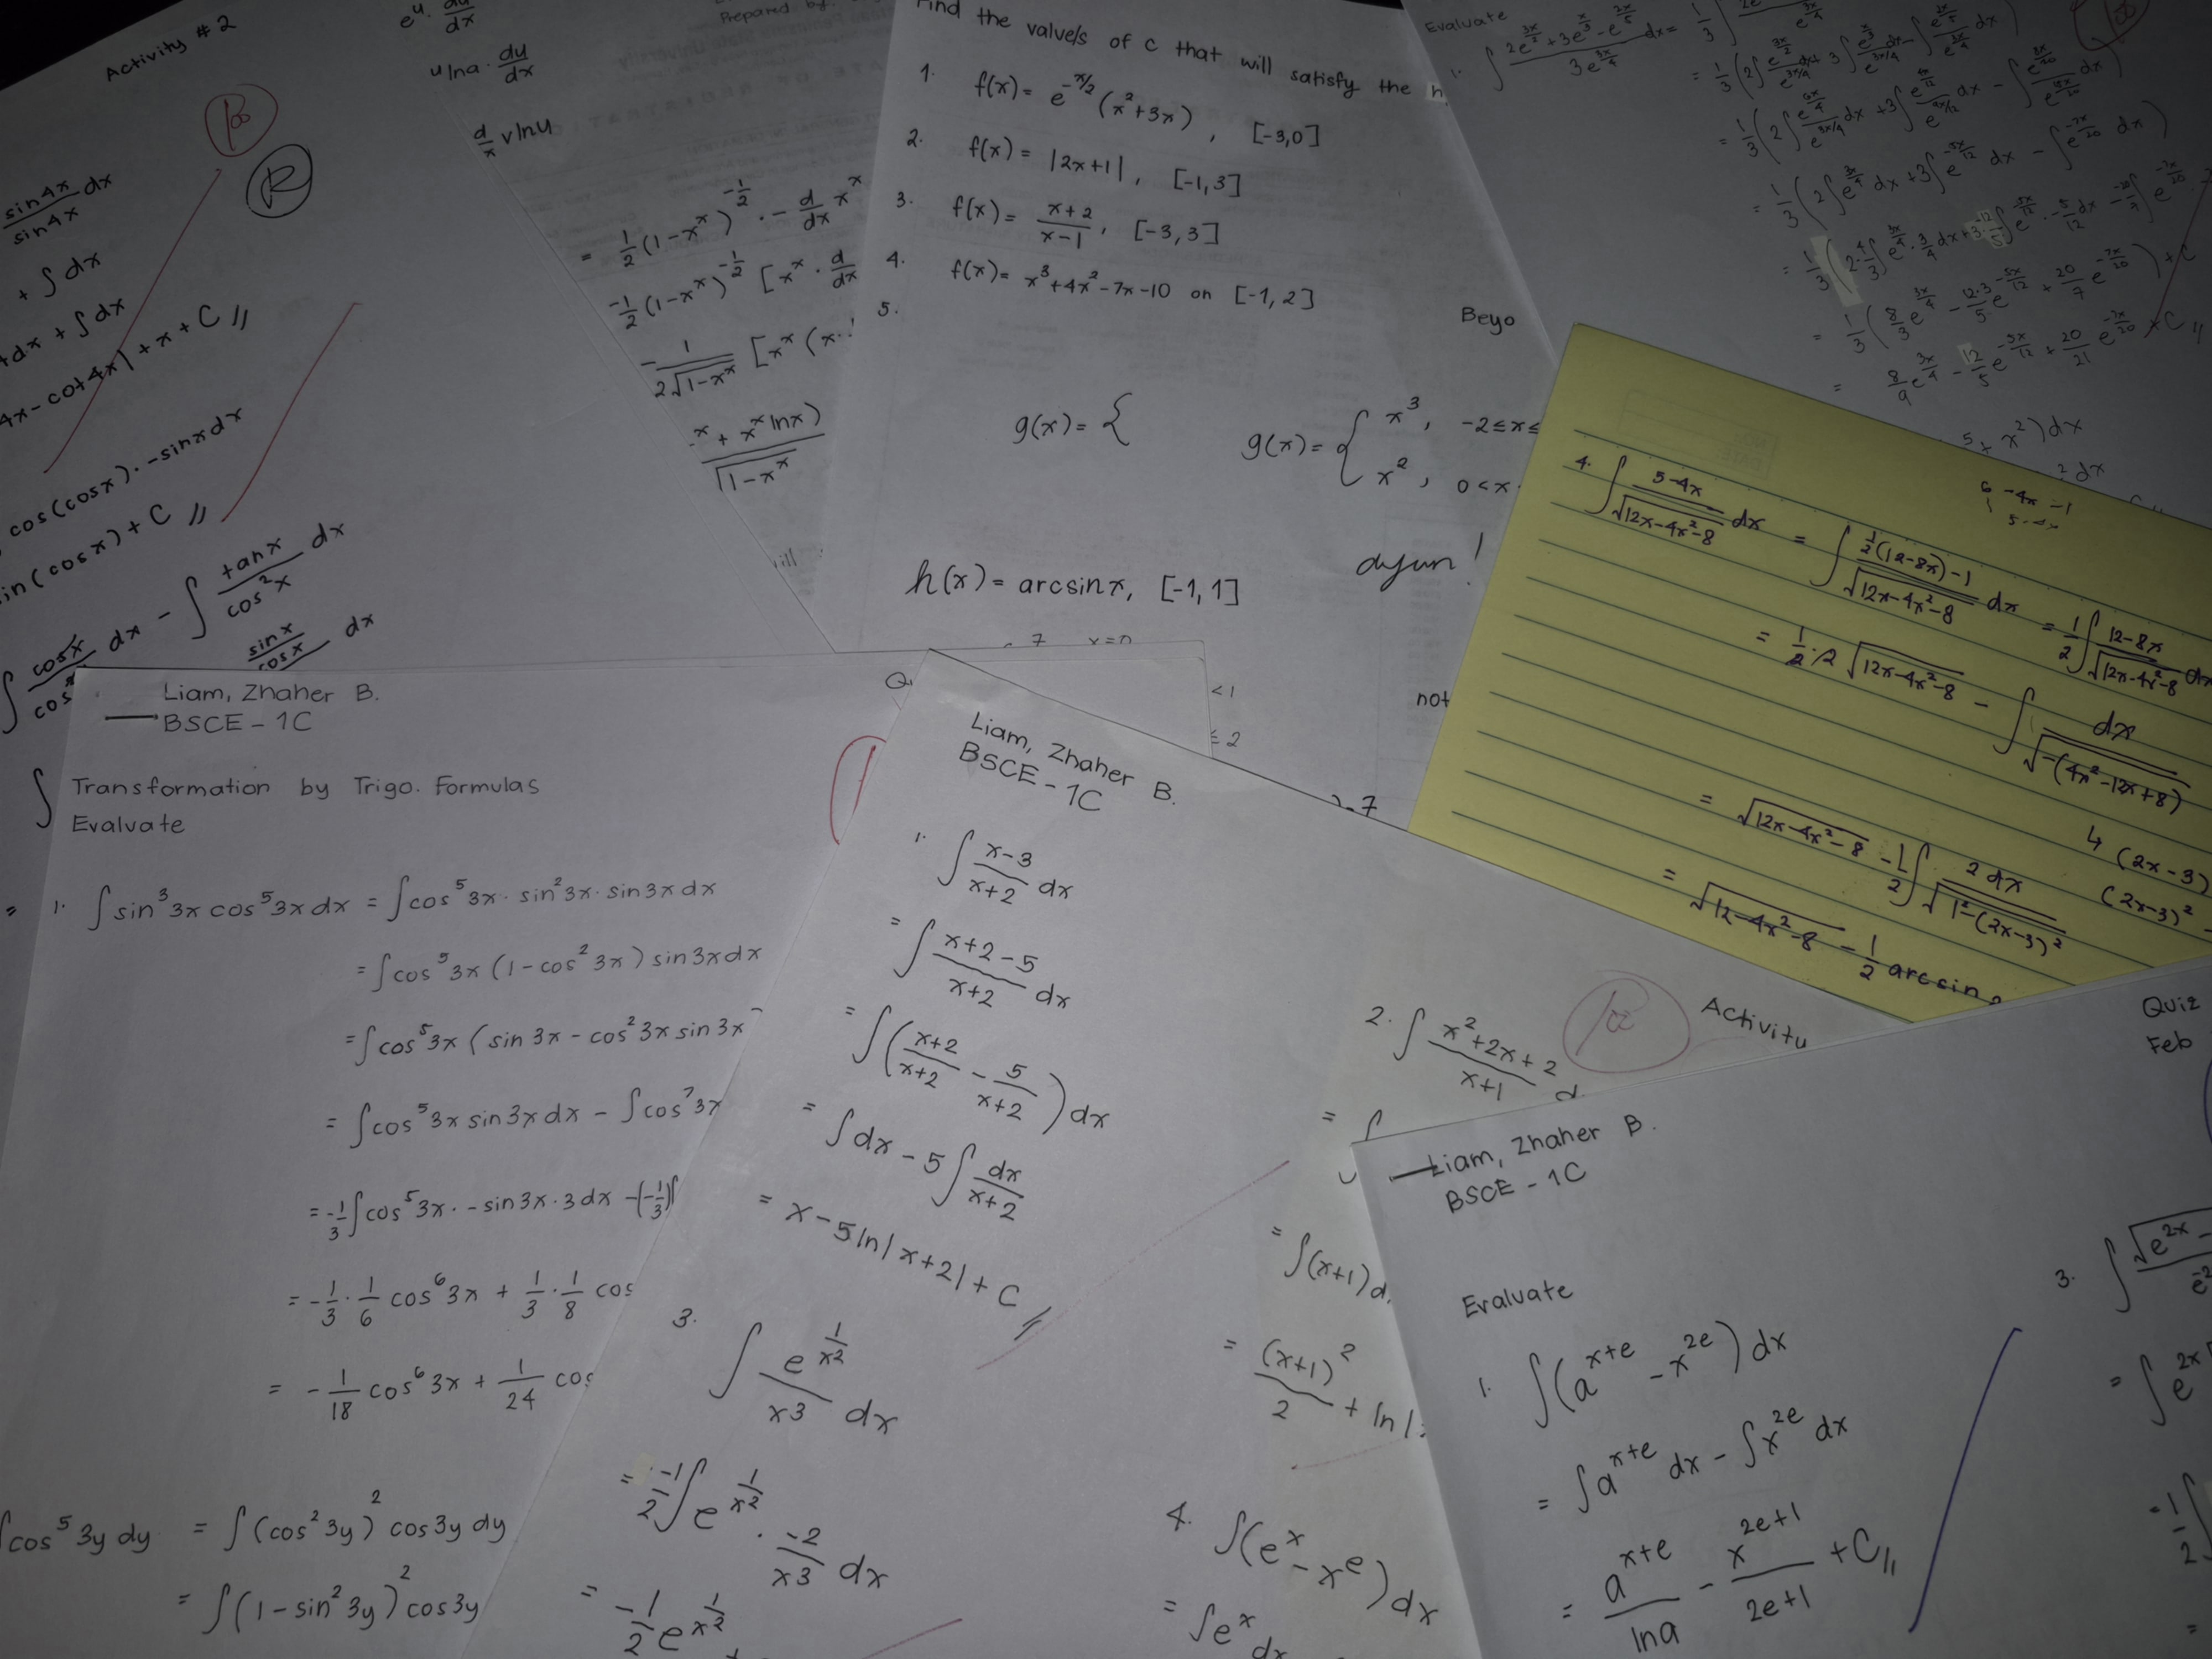 Activity #2
100
R
sin4x/sin4x dx
+ ∫dx
+dx + ∫dx
4x - cot4x| + x + C //
cos(cosx) · -sinxdx
in(cosx) + C //
∫ cosx/cos dx - ∫ tanx/cos²x dx
sinx/cosx dx
e^u · du/dx
u lna · du/dx
d/x v lnu
Prepared by:
= 1/2 (1-x^x)^(-1/2) · - d/dx x^x
-1/2 (1-x^x)^(-1/2) [x^x · d/dx
- 1/(2√(1-x^x)) [x^x (x·
x + x^x lnx) / √(1-x^x)
Find the value/s of c that will satisfy the
1. f(x) = e^(-x/2) (x²+3x) , [-3,0]
2. f(x) = |2x+1| , [-1,3]
3. f(x) = (x+2)/(x-1) , [-3,3]
4. f(x) = x³+4x²-7x-10 on [-1,2]
5.
Beyo
g(x) = {
g(x) = { x³, -2≤x≤
x², 0<x
h(x) = arcsinx, [-1,1]
7 x=0
<1
≤ 2
not
Evaluate
1. ∫ (2e^(3x/2) + 3e^(x/3) - e^(2x/5))/(3e^(3x/4)) dx = 1/3 ∫
= 1/3 (2∫ e^(3x/2)/e^(3x/4) dx + 3∫ e^(x/3)/e^(3x/4) dx - ∫ e^(2x/5)/e^(3x/4) dx)
= 1/3 (2∫ e^(6x/4)/e^(3x/4) dx + 3∫ e^(4x/12)/e^(9x/12) dx - ∫ e^(8x/20)/e^(15x/20) dx)
= 1/3 (2∫ e^(3x/4) dx + 3∫ e^(-5x/12) dx - ∫ e^(-7x/20) dx)
= 1/3 (2·4/3 ∫ e^(3x/4) · 3/4 dx + 3·-12/5 ∫ e^(-5x/12) · -5/12 dx - -20/7 ∫ e^(-7x/20)
= 1/3 (8/3 e^(3x/4) - 12·3/5 e^(-5x/12) + 20/7 e^(-7x/20)) + C
= 8/9 e^(3x/4) - 12/5 e^(-5x/12) + 20/21 e^(-7x/20) + C //
5 + x²)dx
² dx
4. ∫ (5-4x)/√(12x-4x²-8) dx = ∫ (1/2(12-8x)-1)/√(12x-4x²-8) dx = 1/2 ∫ (12-8x)/√(12x-4x²-8) dx
6 -4x -1
5-4x
= 1/2 · 2 √(12x-4x²-8) - ∫ dx/√(-(4x²-12x+8))
= √(12x-4x²-8) - 1/2 ∫ 2dx/√(1²-(2x-3)²)
4 (2x-3)
(2x-3)² -
= √(12-4x²-8) - 1/2 arcsin
Liam, Zhaher B.
BSCE - 1C
∫ Transformation by Trigo. Formulas
Evaluate
= 1. ∫sin³3x cos⁵3x dx = ∫cos⁵3x · sin²3x · sin3x dx
= ∫cos⁵3x (1-cos²3x) sin3x dx
= ∫cos⁵3x (sin3x - cos²3x sin3x
= ∫cos⁵3x sin3x dx - ∫cos⁷3x
= -1/3 ∫cos⁵3x · -sin3x · 3 dx - (-1/3)∫
= -1/3 · 1/6 cos⁶3x + 1/3 · 1/8 cos
= -1/18 cos⁶3x + 1/24 cos
∫cos⁵3y dy = ∫(cos²3y)² cos3y dy
= ∫(1-sin²3y)² cos3y
Liam, Zhaher B.
BSCE - 1C
1. ∫ (x-3)/(x+2) dx
= ∫ (x+2-5)/(x+2) dx
= ∫((x+2)/(x+2) - 5/(x+2)) dx
= ∫dx - 5∫ dx/(x+2)
= x - 5ln|x+2| + C //
3. ∫ e^(1/x2)/x3 dx
= -1/2 ∫ e^(1/x2) · -2/x3 dx
= -1/2 e^(x^(1/2))
Activity
100
2. ∫ (x²+2x+2)/(x+1) d
= ∫
= ∫(x+1)d
= (x+1)²/2 + ln|
4. ∫(e^x - x^e)dx
= ∫e^x dx
Liam, Zhaher B.
BSCE - 1C
Quiz
Feb
Evaluate
1. ∫(a^(x+e) - x^(2e)) dx
= ∫a^(x+e) dx - ∫x^(2e) dx
= a^(x+e)/lna - x^(2e+1)/(2e+1) + C //
3. ∫ √(e^(2x) -
= ∫ e^(2x)
-1/2 ∫